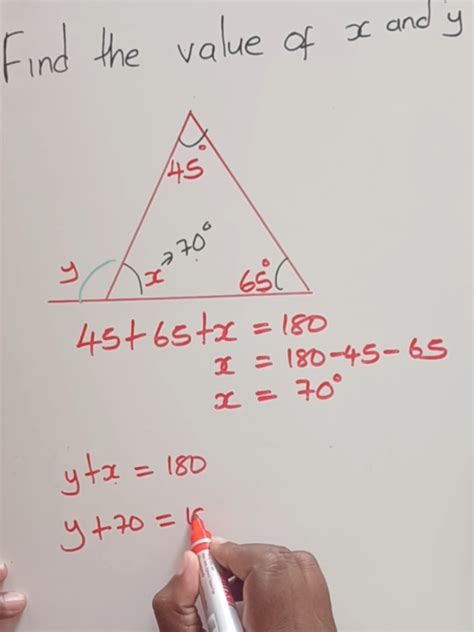 Find the value of x and y
45°
y
x → 70°
65°
45+65+x = 180
x = 180-45-65
x = 70°
y+x = 180
y+70 = 1